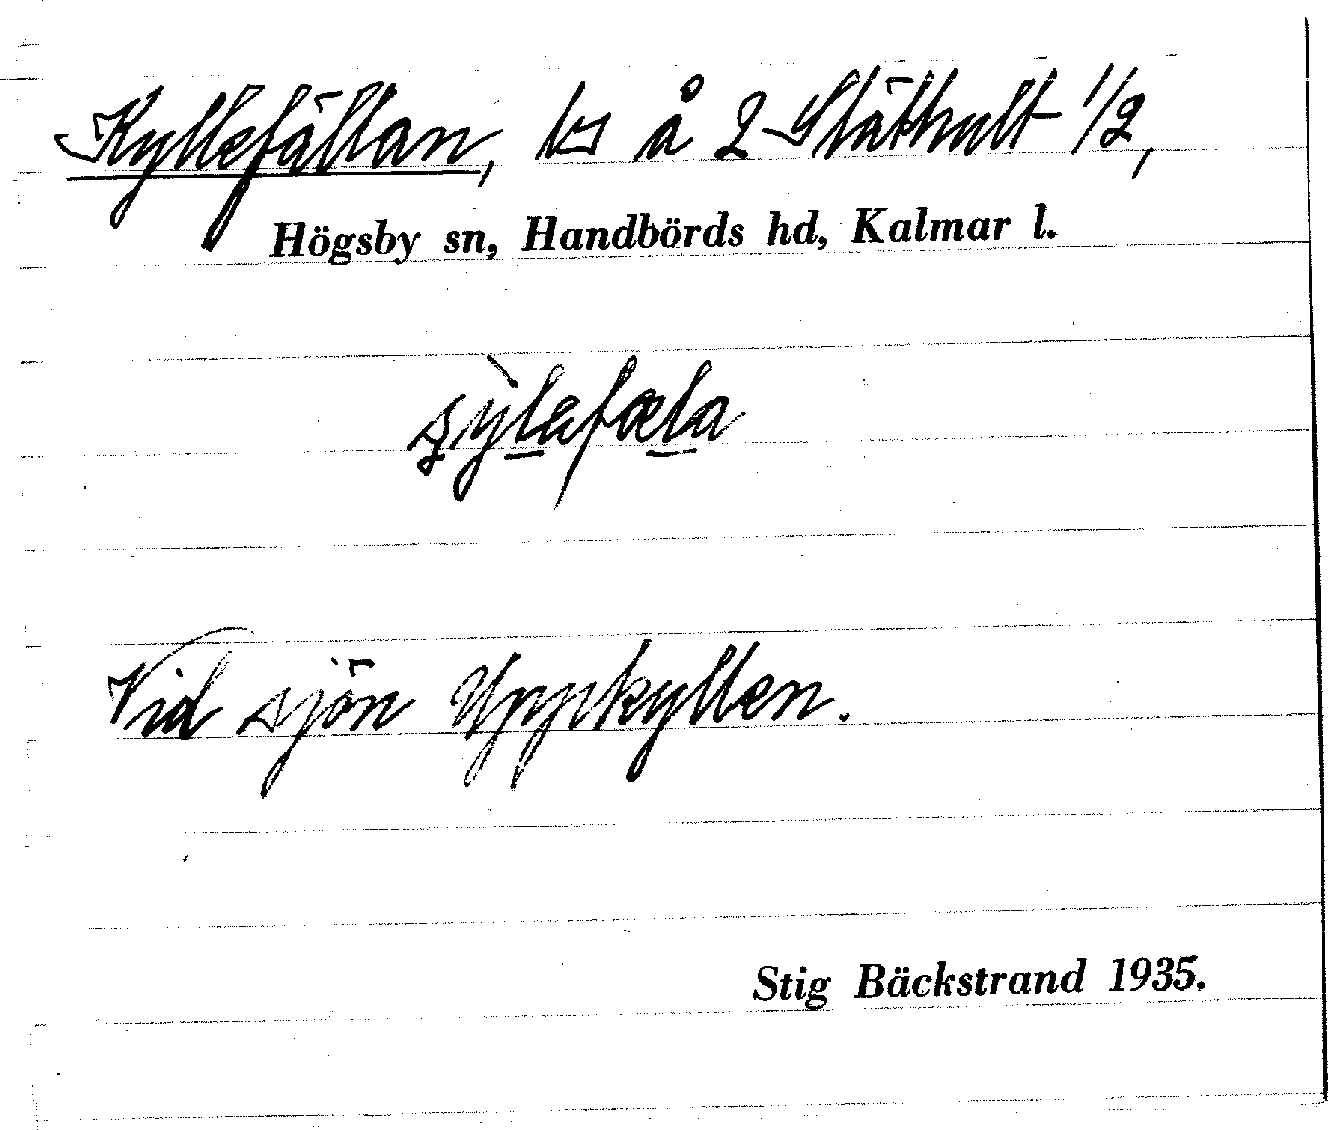 Kyllefällan, ts å 2 Släthult 1/2,
Högsby sn, Handbörds hd, Kalmar l.
Vid sjön Uppkyllen.
Stig Bäckstrand 1935.